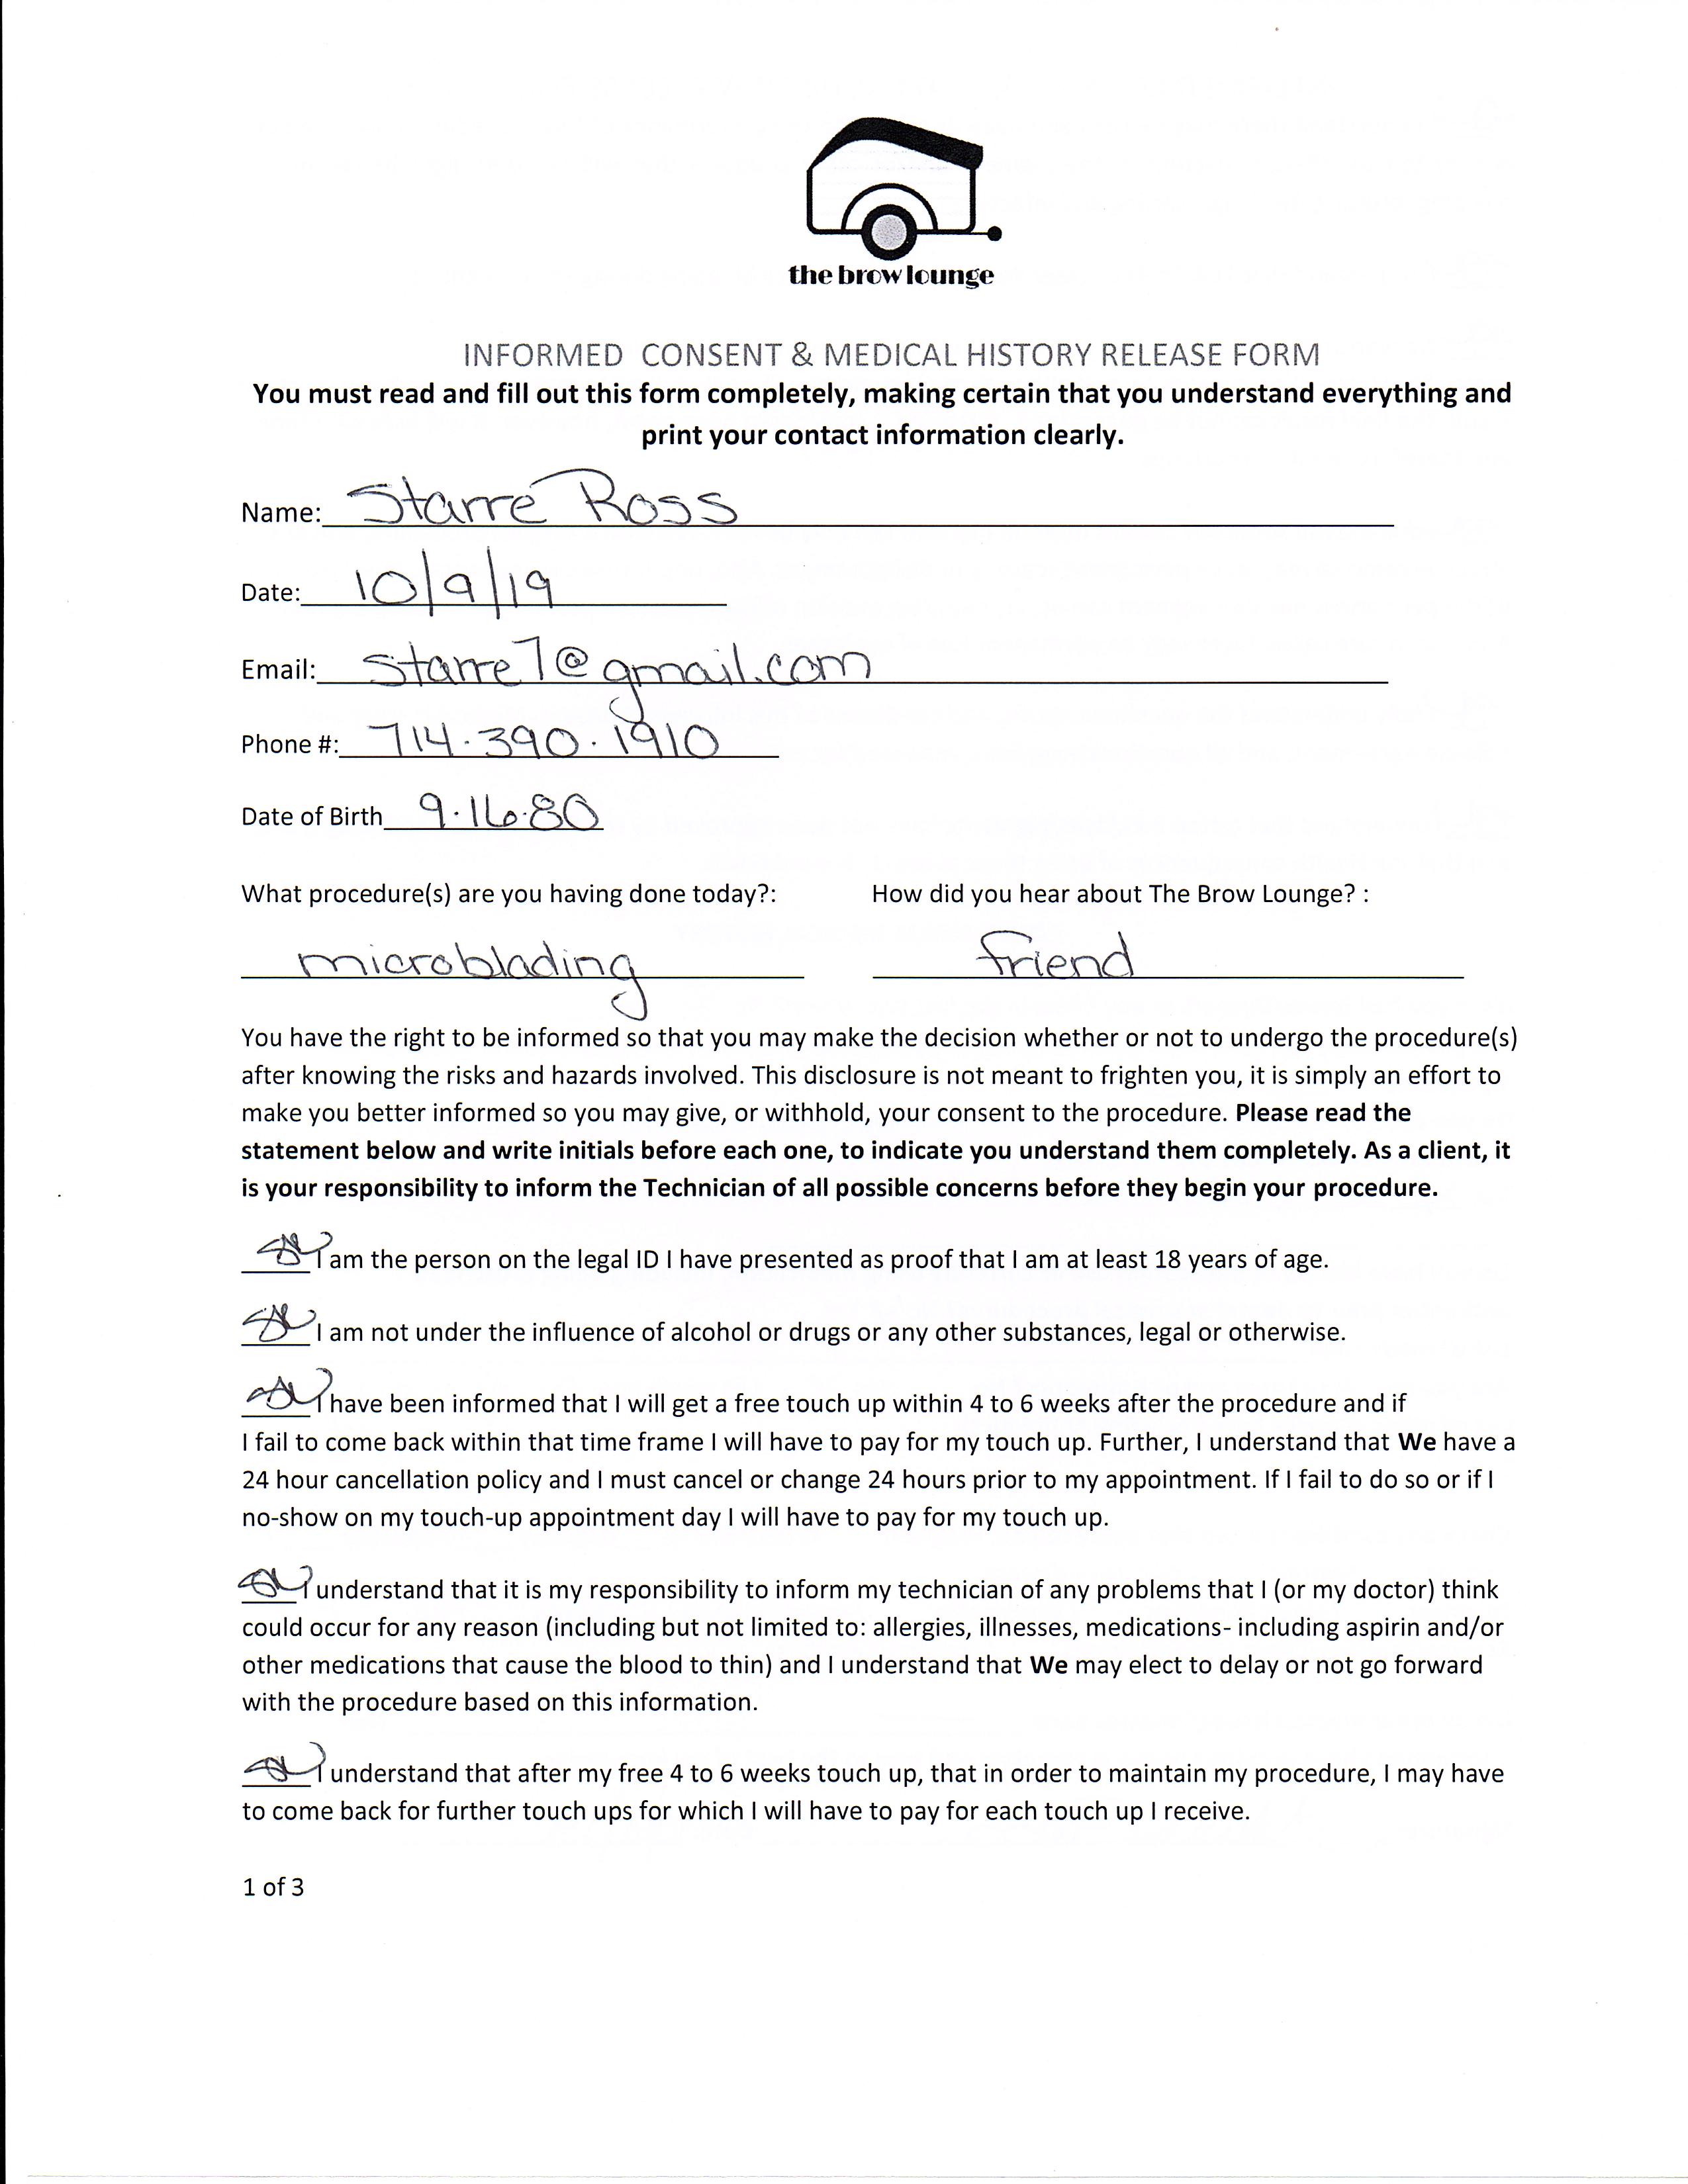 the brow lounge
INFORMED CONSENT & MEDICAL HISTORY RELEASE FORM
You must read and fill out this form completely, making certain that you understand everything and
print your contact information clearly.
Name: Starre Ross
Date: 10/9/19
Email: Starre7@gmail.com
Phone #: 714.390.1910
Date of Birth 9.16.80
What procedure(s) are you having done today?: How did you hear about The Brow Lounge? :
microblading friend
You have the right to be informed so that you may make the decision whether or not to undergo the procedure(s)
after knowing the risks and hazards involved. This disclosure is not meant to frighten you, it is simply an effort to
make you better informed so you may give, or withhold, your consent to the procedure. Please read the
statement below and write initials before each one, to indicate you understand them completely. As a client, it
is your responsibility to inform the Technician of all possible concerns before they begin your procedure.
I am the person on the legal ID I have presented as proof that I am at least 18 years of age.
I am not under the influence of alcohol or drugs or any other substances, legal or otherwise.
I have been informed that I will get a free touch up within 4 to 6 weeks after the procedure and if
I fail to come back within that time frame I will have to pay for my touch up. Further, I understand that We have a
24 hour cancellation policy and I must cancel or change 24 hours prior to my appointment. If I fail to do so or if I
no-show on my touch-up appointment day I will have to pay for my touch up.
I understand that it is my responsibility to inform my technician of any problems that I (or my doctor) think
could occur for any reason (including but not limited to: allergies, illnesses, medications- including aspirin and/or
other medications that cause the blood to thin) and I understand that We may elect to delay or not go forward
with the procedure based on this information.
I understand that after my free 4 to 6 weeks touch up, that in order to maintain my procedure, I may have
to come back for further touch ups for which I will have to pay for each touch up I receive.
1 of 3